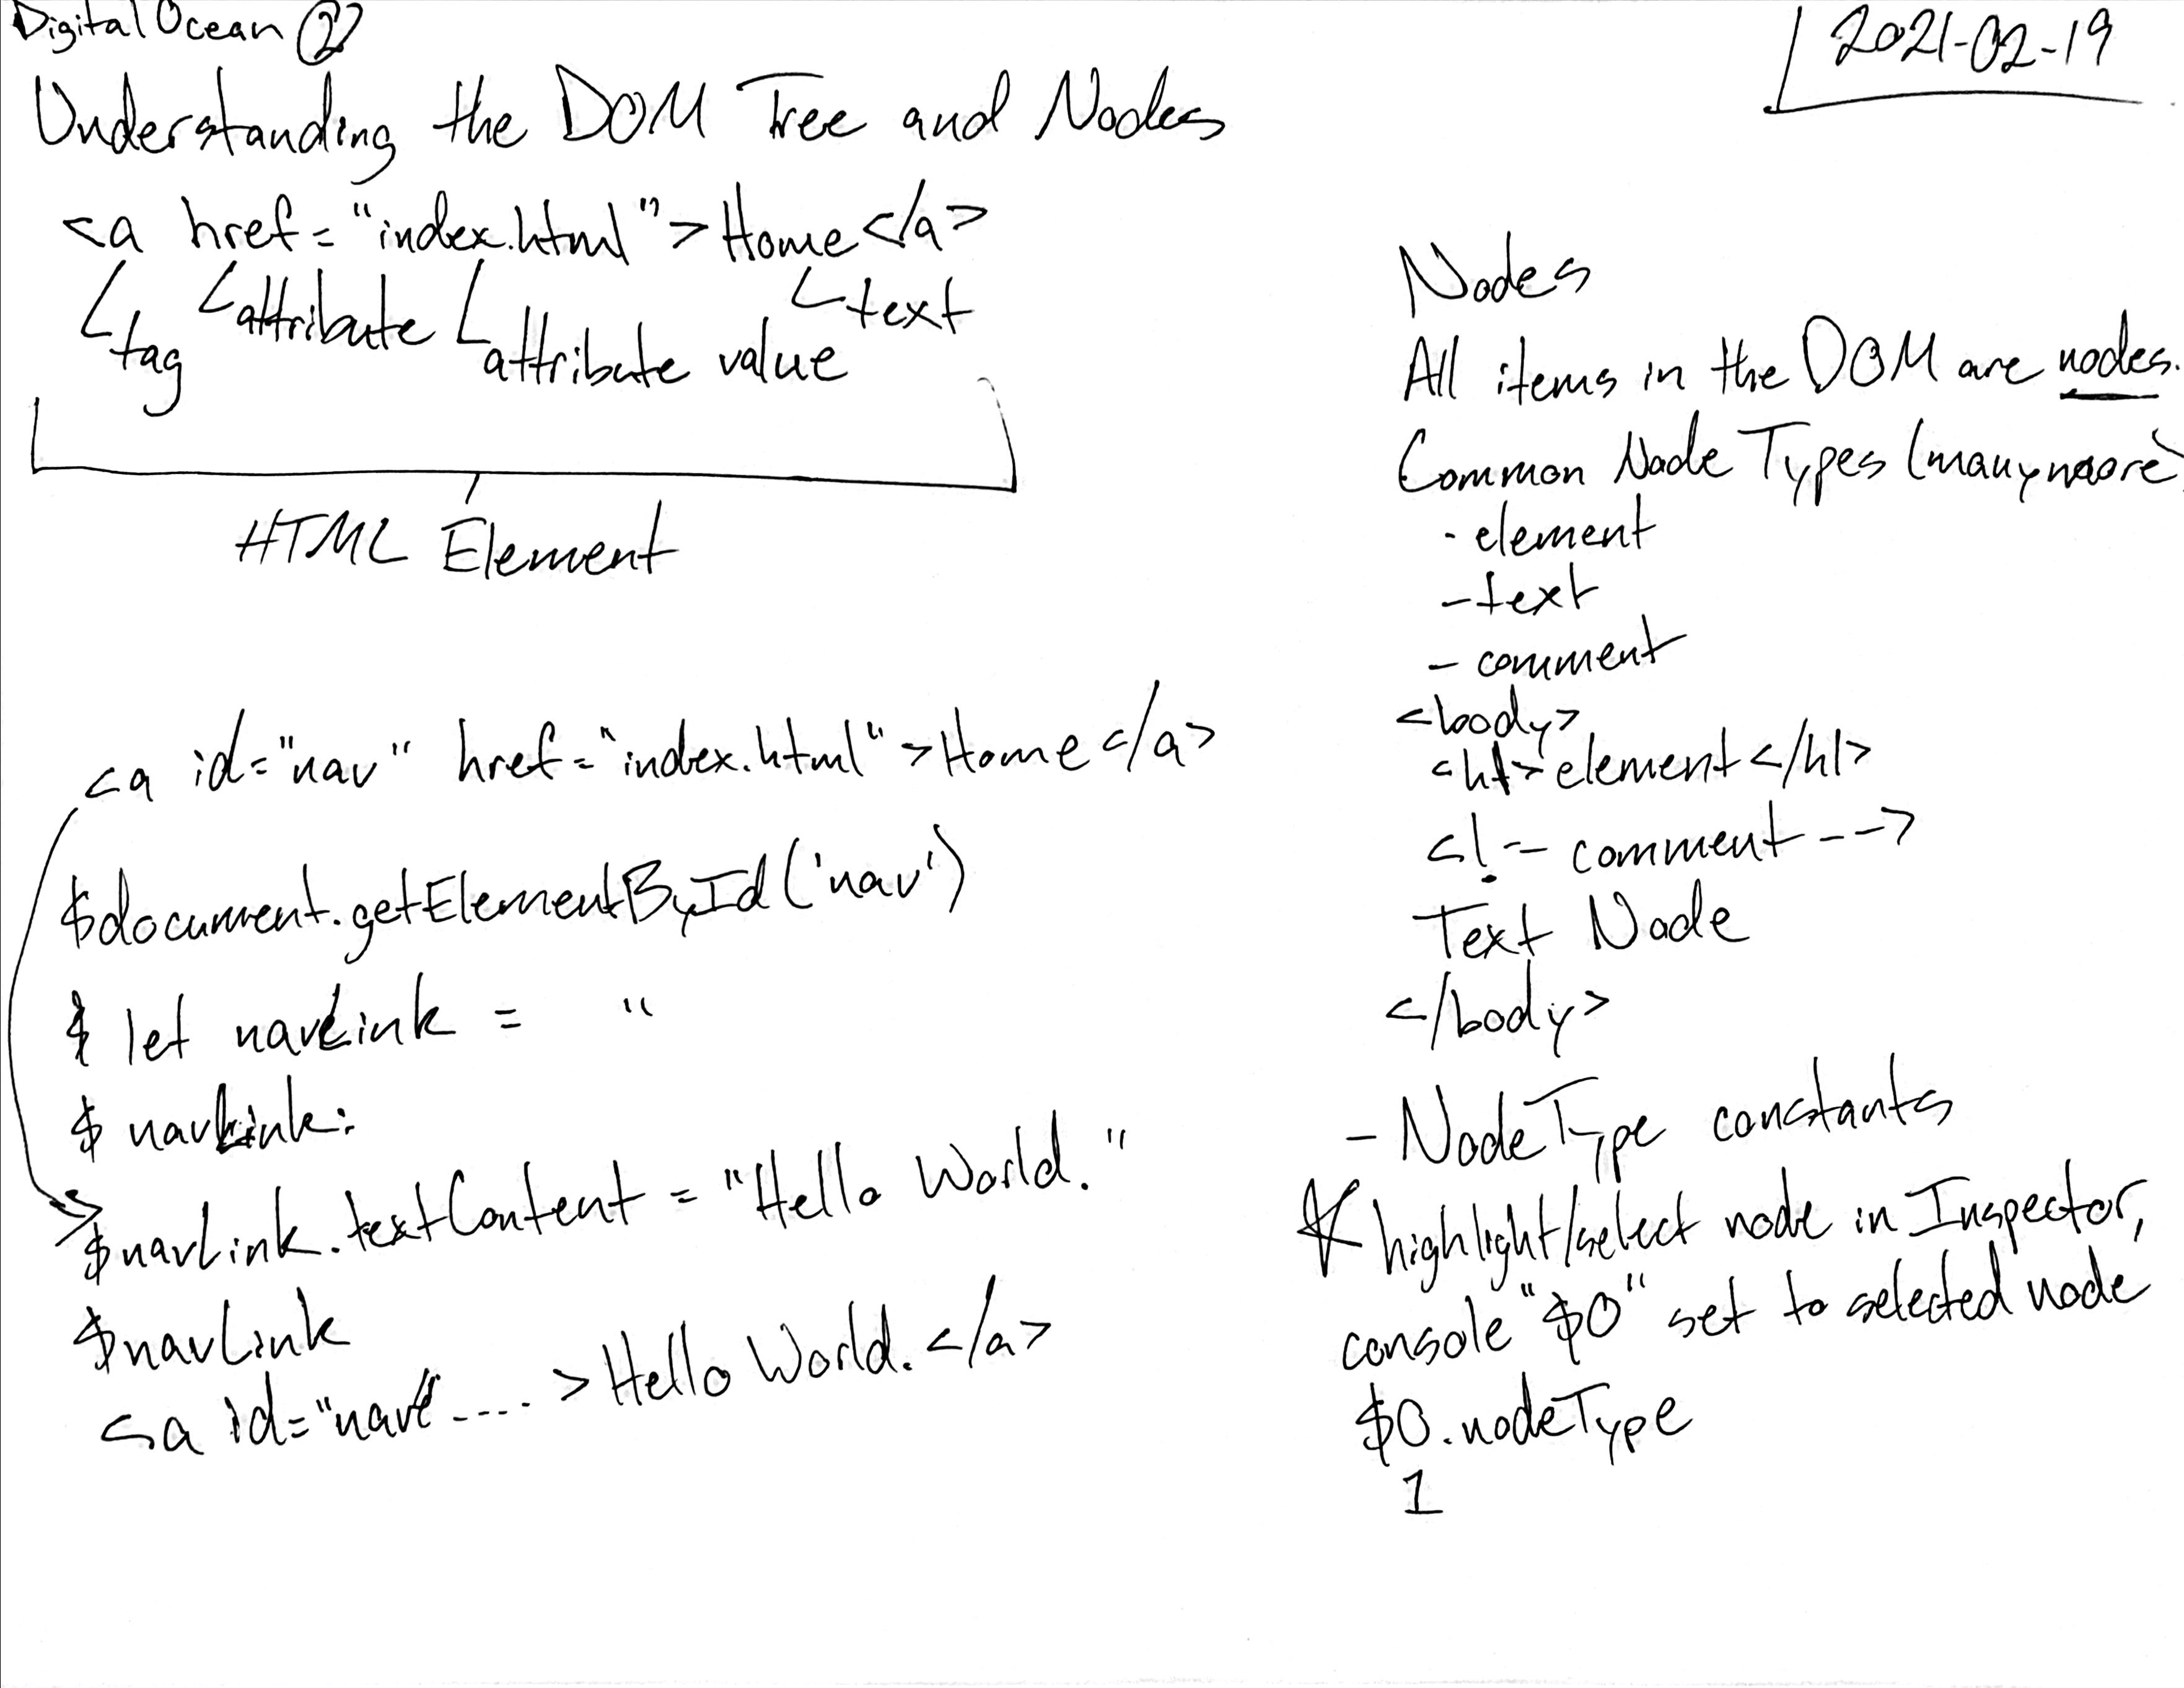 Digital Ocean ②
2021-02-19
Understanding the DOM Tree and Nodes
<a href="index.html">Home</a>
tag attribute attribute value text
HTML Element
<a id="nav" href="index.html">Home</a>
$document.getElementById('nav')
$ let navLink = "
$ navLink:
$navLink.textContent = "Hello World."
$navLink
<a id="nav" ....>Hello World.</a>
Nodes
All items in the DOM are nodes.
Common Node Types (many more)
- element
- text
- comment
<body>
<h1>element</h1>
<!-- comment -->
Text Node
</body>
- NodeType constants
* highlight/select node in Inspector,
console "$0" set to selected node
$0.nodeType
1